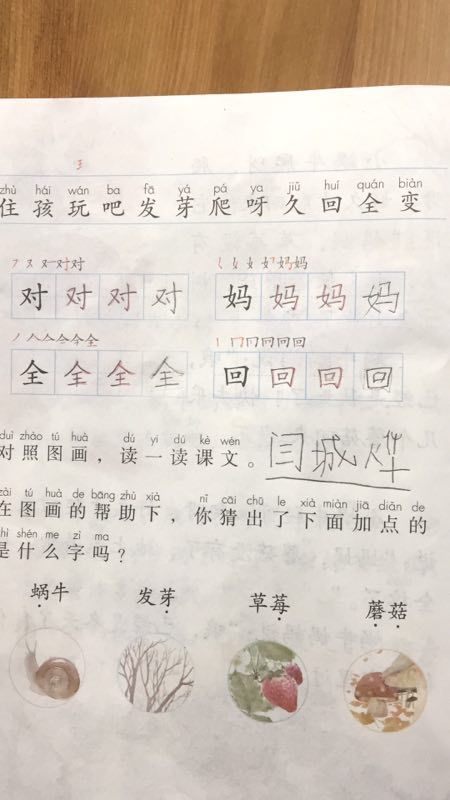 zhù hái wán ba fā yá pá ya jiǔ huí quán biàn
住孩玩吧发芽爬呀久回全变
对对对对 妈妈妈妈
全全全全 回回回回
duì zhào tú huà dú yi dú kè wén
对照图画，读一读课文。闫城烨
zài tú huà de bāng zhù xià nǐ cāi chū le xià miàn jiā diǎn de
在图画的帮助下，你猜出了下面加点的
shì shén me zì ma
是什么字吗？
蜗牛 发芽 草莓 蘑菇